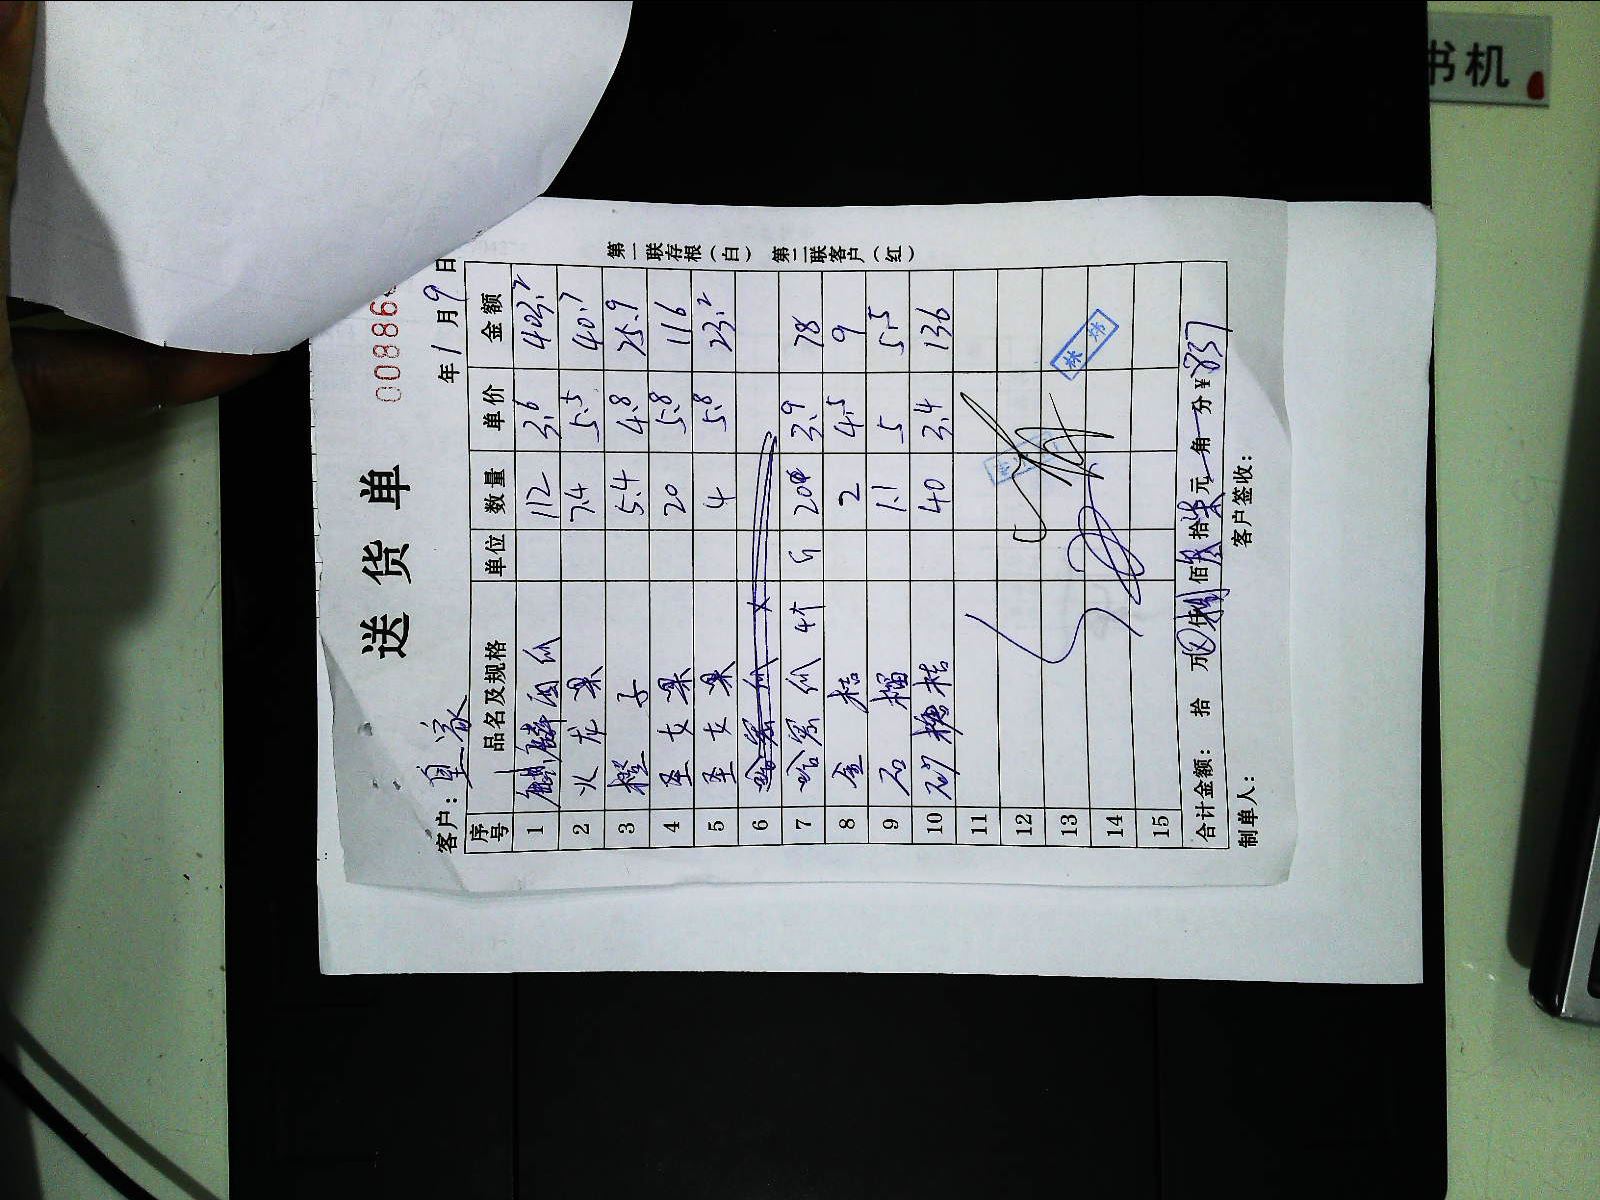 送货单
00886
客户：皇家 年1月9日
序号 品名及规格 单位 数量 单价 金额
1 麒麟西瓜 112 3.6 403.2
2 火龙果 7.4 5.5 40.7
3 橙子 5.4 4.8 25.9
4 圣女果 20 5.8 116
5 圣女果 4 5.8 23.2
6 哈密瓜
7 哈密瓜 4个 斤 20 3.9 78
8 金桔 2 4.5 9
9 石榴 1.1 5 5.5
10 砂糖桔 40 3.4 136
11
12
13
14
15
合计金额： 拾 万 仟捌佰叁拾柒元 角 分 ¥837
制单人： 客户签收：
第一联存根（白） 第二联客户（红）
书机